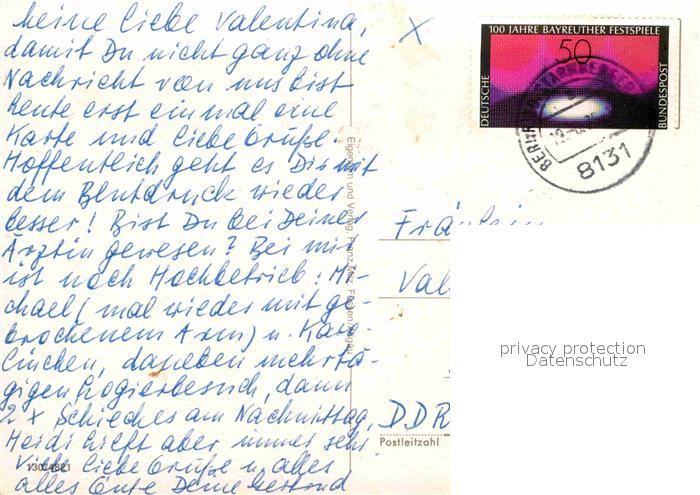 Meine liebe Valentina,
damit Du nicht ganz ohne
Nachricht von uns bist
heute erst einmal eine
Karte und liebe Grüße.
Hoffentlich geht es Dir mit
dem Blutdruck wieder
besser! Bist Du bei Deiner
Ärztin gewesen? Bei mir
ist noch Hochbetrieb! Mi-
chael (mal wieder mit ge-
brochenem Arm) u. Karo-
linchen, daneben mehrtä-
gigen Logierbesuch, dann
2 x Schieches am Nachmittag,
Heidi hilft aber immer sehr.
Viele liebe Grüße u. alles
alles Gute Deine
13074881
Eigentum und Verlag
X
100 JAHRE BAYREUTHER FESTSPIELE
50
DEUTSCHE
BUNDESPOST
8131
Fräulein
Val
DDR
Postleitzahl
privacy protection
Datenschutz